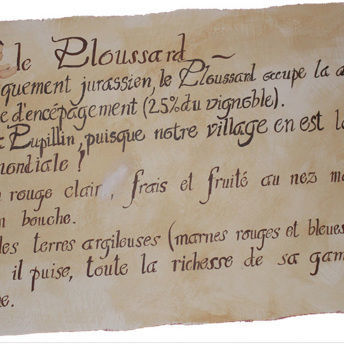 le Ploussard
quement jurassien, le Ploussard occupe la
e d'encépagement (25% du vignoble).
Pupillin, puisque notre village en est la
mondiale !
rouge clair, frais et fruité au nez
n bouche.
les terres argileuses (marnes rouges et bleues
il puise, toute la richesse de sa gam
e.